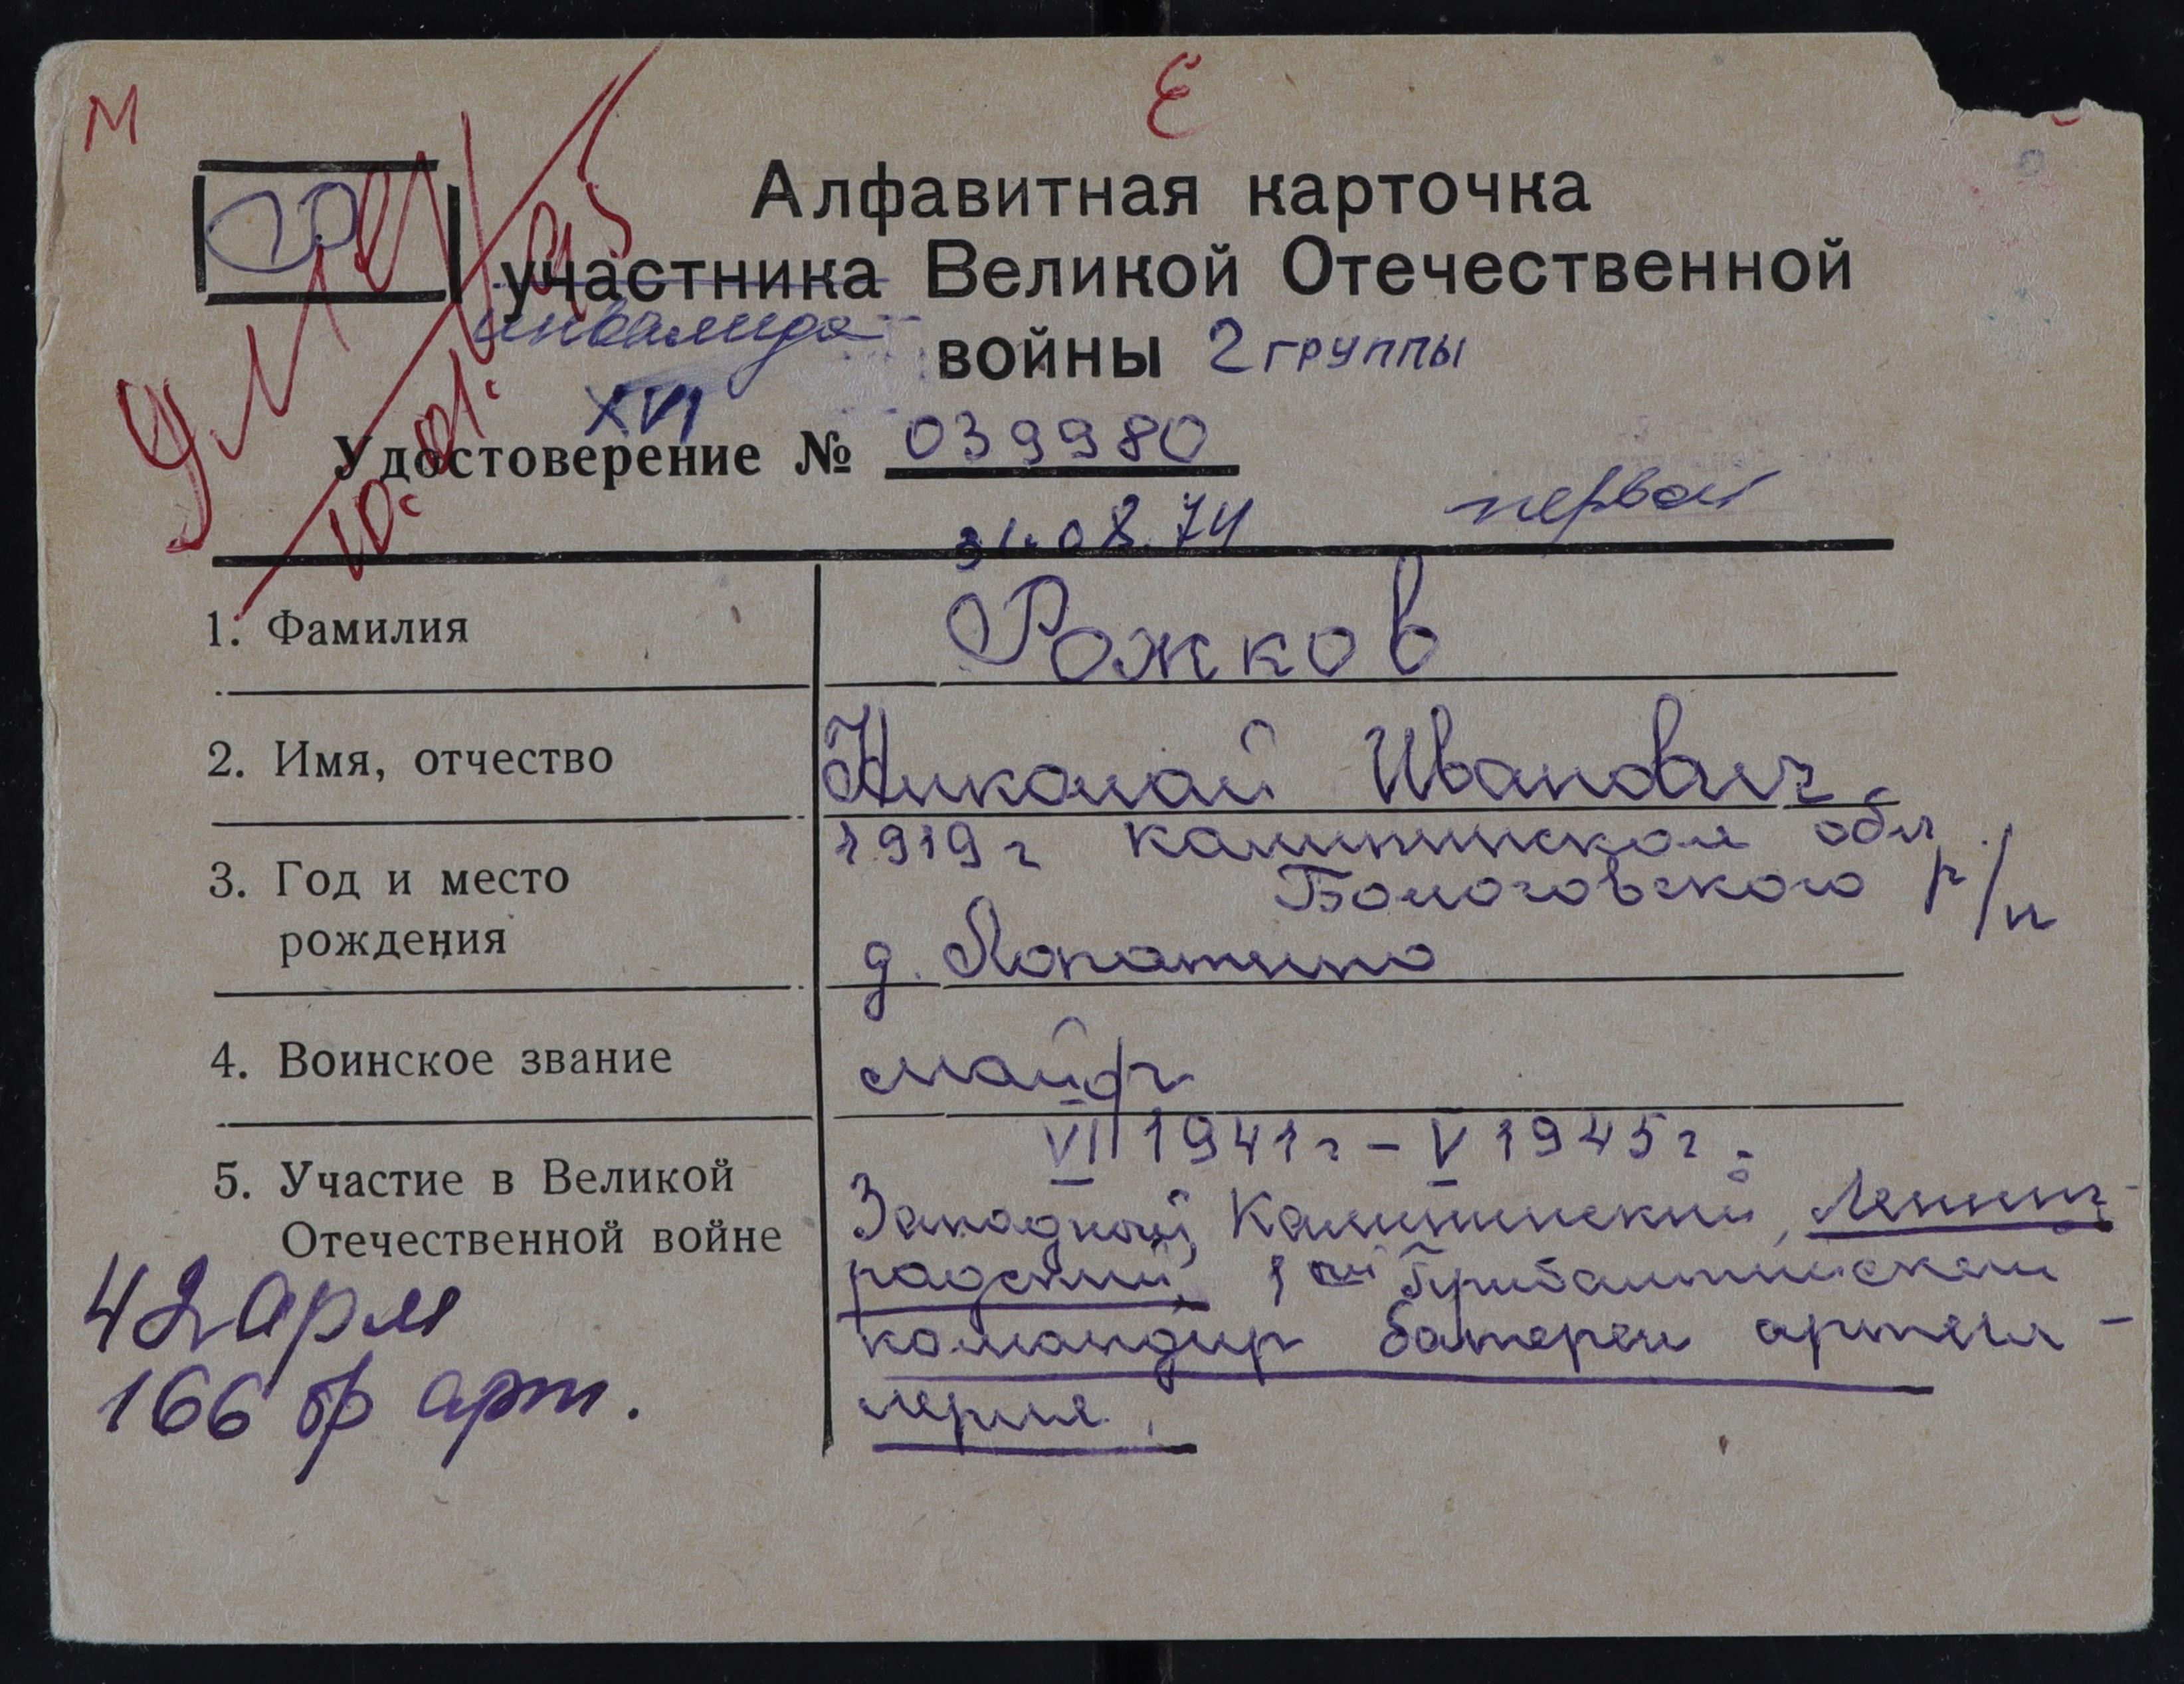 М
Е
20
умер
10.01.95
Алфавитная карточка
участника Великой Отечественной
инвалида
войны 2 группы
XVI
Удостоверение № 039980
31.08.74 первой
1. Фамилия Рожков
2. Имя, отчество Николай Иванович
3. Год и место рождения 1919 г Калининской обл.
Бологовского р/н
д. Лопатино
4. Воинское звание майор
5. Участие в Великой Отечественной войне VII 1941 г - V 1945 г.
Западный, Калининский, Ленинг-
радский, 1ый Прибалтийский
командир батареи артил-
лерия.
42 арм
166 бр арт.